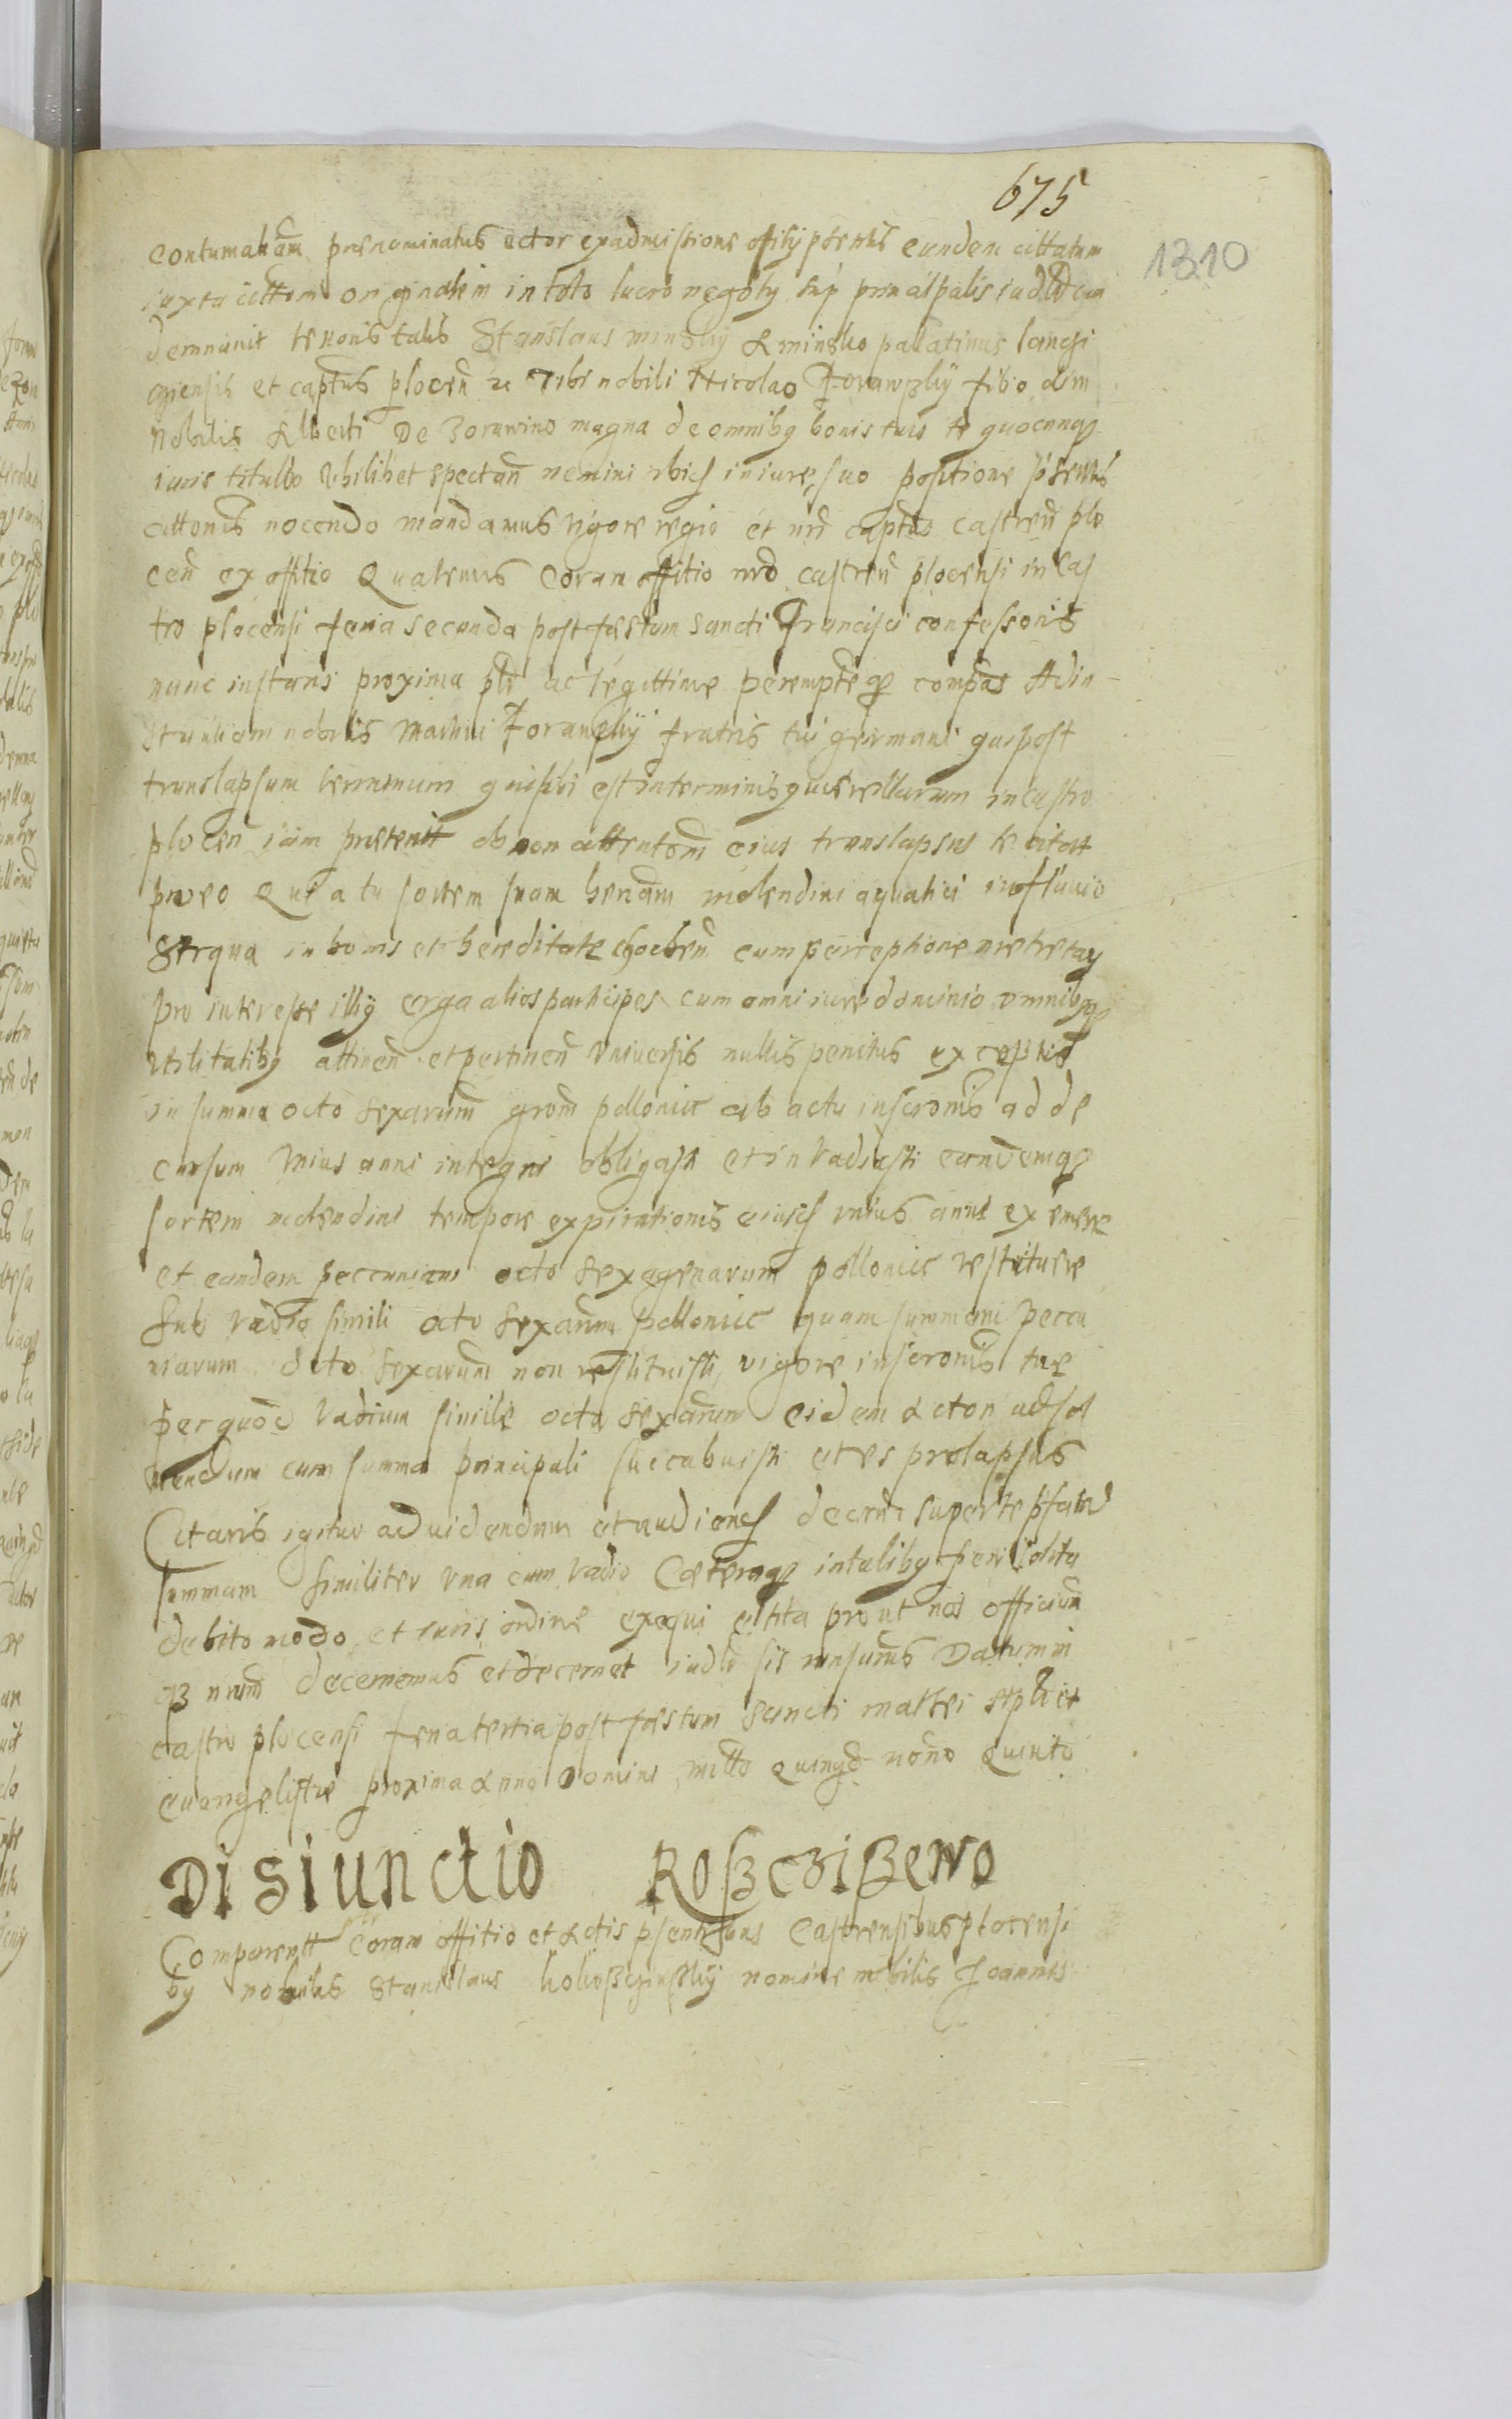 675
1310
contumatiam praenominatus actor exadmissione offitij pntis eundem cittatum
iuxta cittom originalem in toto lucro negoty sup principalis iudld con
demnavit tenoris talis Stanislaus minsky de minsko palatinus lanci
ciensis et captus plocen &c Tibi nobili Nicolao Zorawsky filio olim
Nobilis Alberti De Zorawino magna de omnibg bonis tuis te quocunqz
iuris titullo ubilibet spectan nemini ibid in iure suo positione pntis
cittonis nocendo mandamus vigore regio et nri captus castren plo
cen ex offitio Quatenus Coram offitio nro castren plocensi in Cas
tro plocensi feria secunda post festum Sancti Francisci confessoris
nunc instans proxima plr ac legittime perempteqz compas Adin
stantiam nobilis Martini Zorawsky fratris tui germani qui post
translapsum terminum qui sibi est interminis quaerellarum in castro
plocen iam praeterit ob non attentom eius translapsus te citat
pro eo Quia tu sortem suam heriam molendini aquatici in fluvio
Srqua in bonis et hereditate cum perceptione metretarg
pro interesse illig erga alios participes cum omni iure dominio omnibgqz
utilitatibg attinen et pertinen universis nullis penitus exceptis
in summa octo sexarum grom pollonic ab actu inscronis ad de
cursum unius anni integri obligasti et in vadiasti eandemqz
sortem molendini tempore expirationis eiusd unius anni eximere
et eandem peccuniam octo sexagenarum pollonic restituere
sub vadio simili octo sexarum pollonic quam summam peccu
niarum octo sexarum non restituisti vigore inscronis tue
per quod vadium simile octo sexarum eidem actori adsol
vendum cum summa principali succubuisti et es prolapsus
Citaris igitur ad videndum et audiend decerni super te pfatam
summam similiter una cum vadio Caeteraqz in talibg fieri solita
debito modo et iuris ordine exequi citta prout nos officium
qz nrum decernemus et decernet iudlr sis responsurus Datum in
castro plocensi feria tertia post festum Sancti mathei apli et
evangelistae proxima Anno Domini millo Quingo nono Quinto
Disiunctio Roszczissewo
Comparentt Coram offitio et Actis psentibus Castrensibus plocensi
bg nobilis Stanislaus kokosczynsky nomine nobilis Joannis